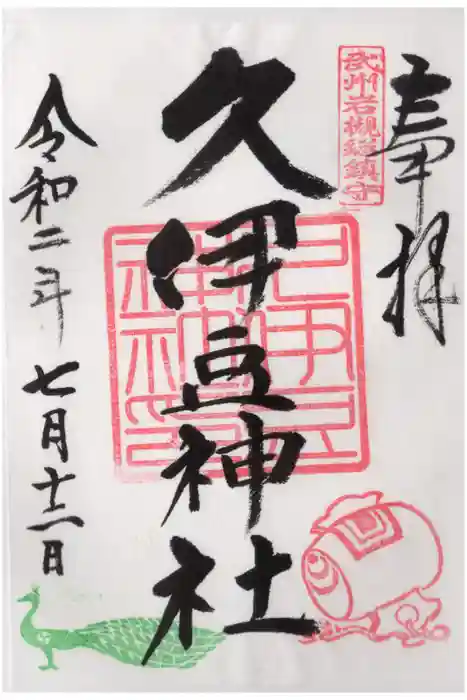 奉拝
武州岩槻総鎮守
久伊豆神社
久伊豆神社印
令和二年七月十六日